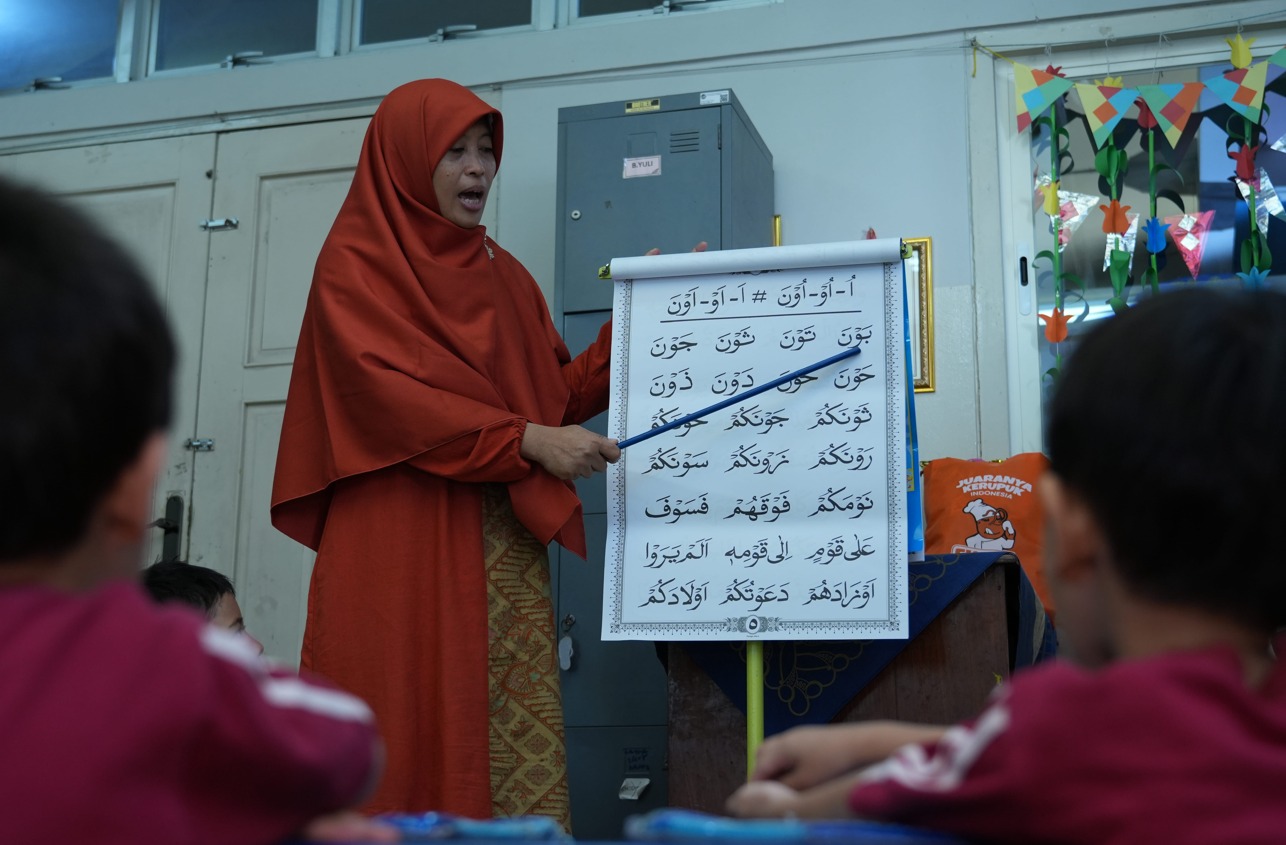 B.YULI
اُ - اُوْ - اُوْنَ # اَ - اَوْ - اَوْنَ
بَوْنَ تَوْنَ ثَوْنَ جَوْنَ
حَوْنَ خَوْنَ دَوْنَ ذَوْنَ
ثَوْنَكُمْ جَوْنَكُمْ حَوْنَكُمْ
رَوْنَكُمْ زَوْنَكُمْ سَوْنَكُمْ
نَوْمَكُمْ فَوْقَهُمْ فَسَوْفَ
عَلٰى قَوْمٍ اِلٰى قَوْمِهٖ اَلَمْ يَرَوْا
اَوْزَارَهُمْ دَعَوْتُكُمْ اَوْلَادَكُمْ
٥
JUARANYA
KERUPUK
INDONESIA